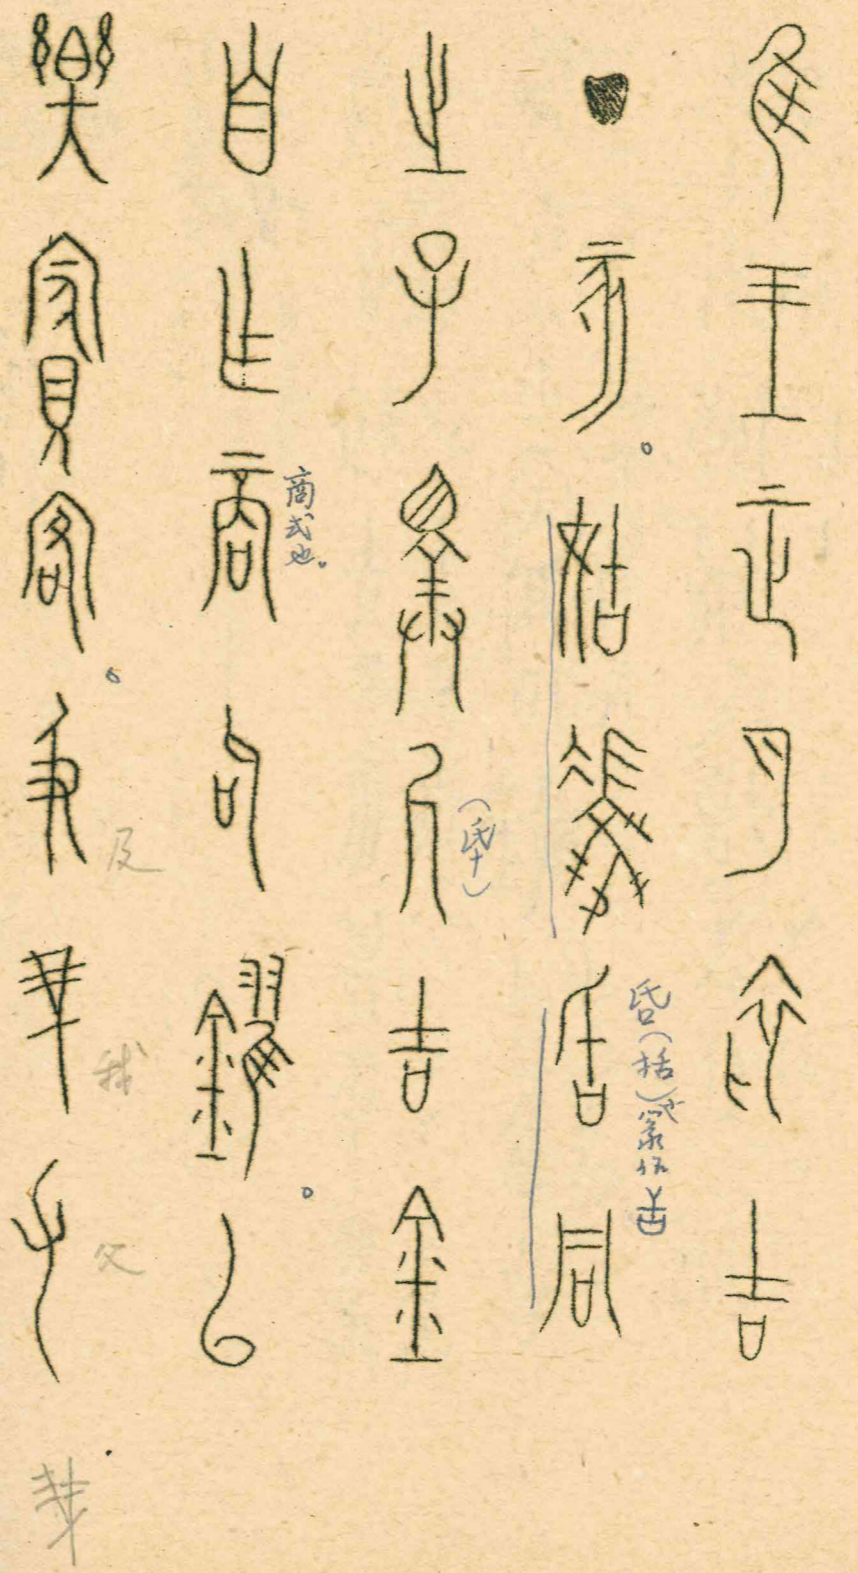 隹王正月初吉
丁亥。姑馮昏同
之子擇氒吉金
(氒)
自乍商句鑃。㠯
商式也。
樂賓客。及我父
及
我
父